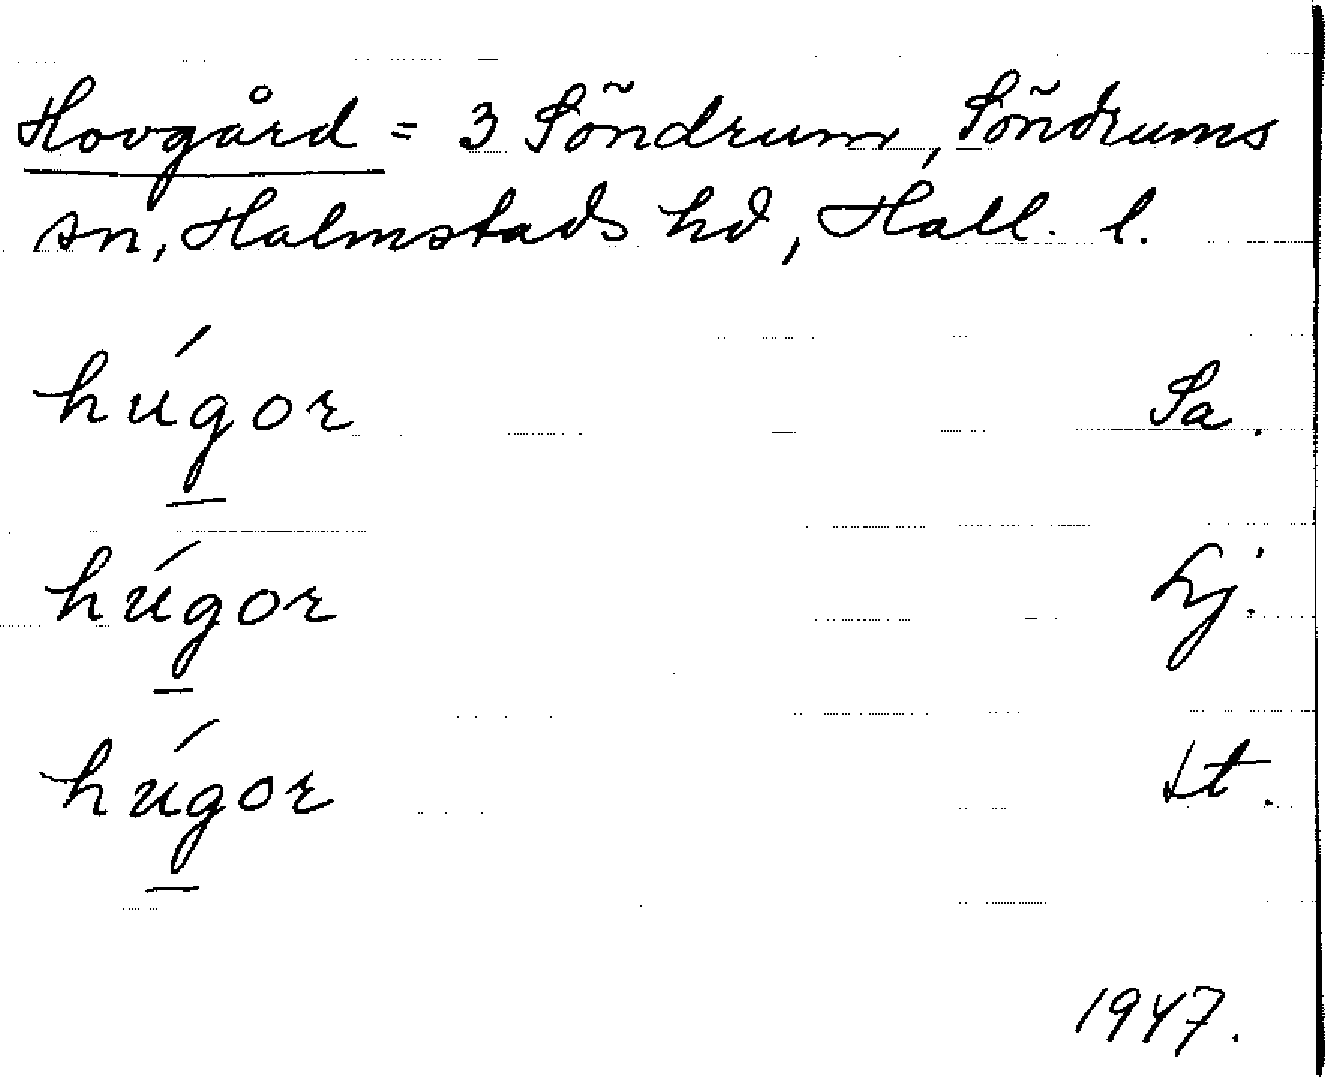 Hovgård = 3 Söndrum, Söndrums
sn, Halmstads hd, Hall. l.
húgor Sa.
húgor Lj.
húgor Lt.
1947.